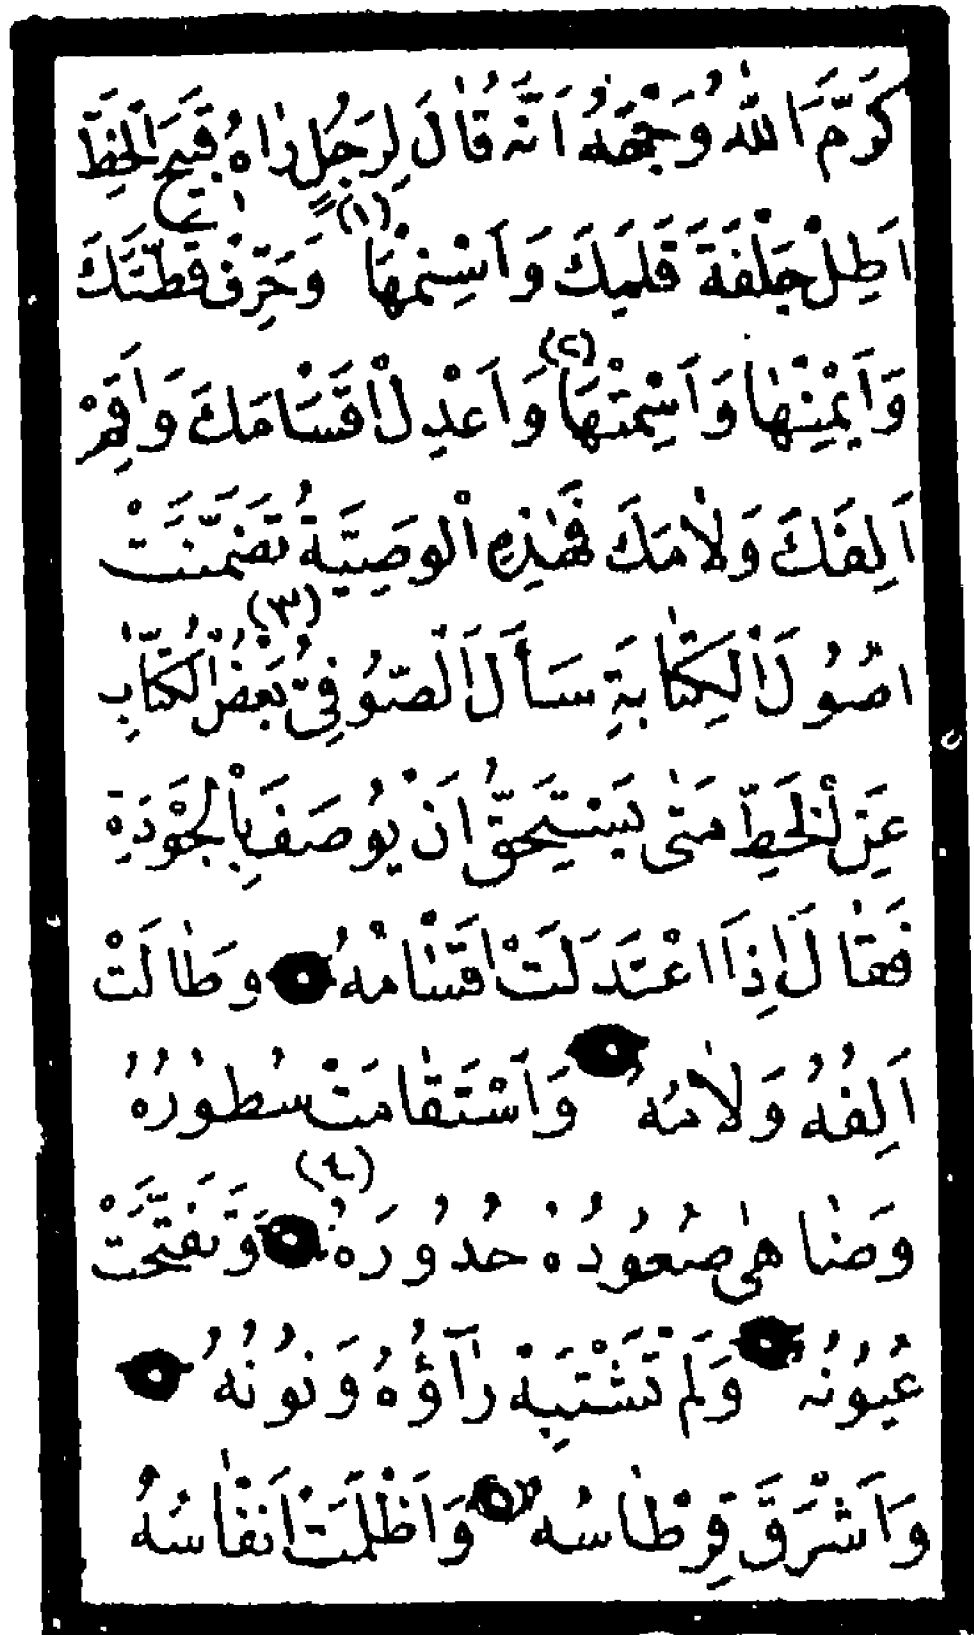 كَرَّمَ اَللّٰهُ وَجْهَهُ اَنَّهُ قَالَ لِرَجُلٍ رَاٰهُ قَبِيحَ اَلْخَطِّ
اَطِلْ جَلْفَةَ قَلَمِكَ وَاَسْمِنْهَا (١) وَحَرِّفْ قَطَّتَكَ
وَاَيْمِنْهَا وَاَسْمِتْهَا (٢) وَاَعْدِلْ اَقْسَامَكَ وَاَقِمْ
اَلِفَكَ وَلَامَكَ فَهٰذِهِ الْوَصِيَّةُ تَضَمَّنَتْ
اُصُولَ اَلْكِتَابَةِ (٣) سَأَلَ اَلصُّوفِيُّ بَعْضُ اَلْكُتَّابِ
عَنِ الْخَطِّ مَتٰى يَسْتَحِقُّ اَنْ يُوصَفَ بِالْجَوْدَةِ
فَقَالَ اِذَا اعْتَدَلَتْ اَقْسَامُهُ وَطَالَتْ
اَلِفُهُ وَلَامُهُ وَاَسْتَقَامَتْ سُطُورُهُ
وَضَاهٰى صُعُودُهُ حُدُورَهُ (٤) وَتَفَتَّحَتْ
عُيُونُهُ وَلَمْ تَشْتَبِهْ رَآؤُهُ وَنُونُهُ
وَاَشْرَقَ قِرْطَاسُهُ وَاَظْلَمَتْ اَنْقَاسُهُ